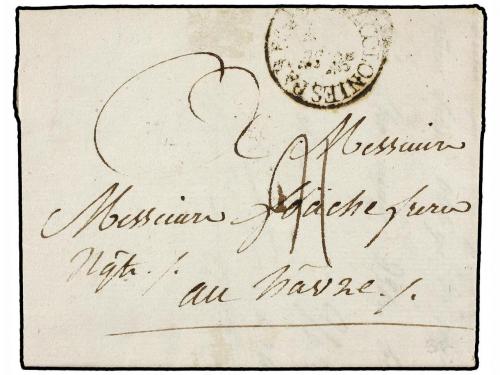 COLONIES PAR
Messieurs
Messieurs foache freres
Ngts ./.
au hâvre ./.